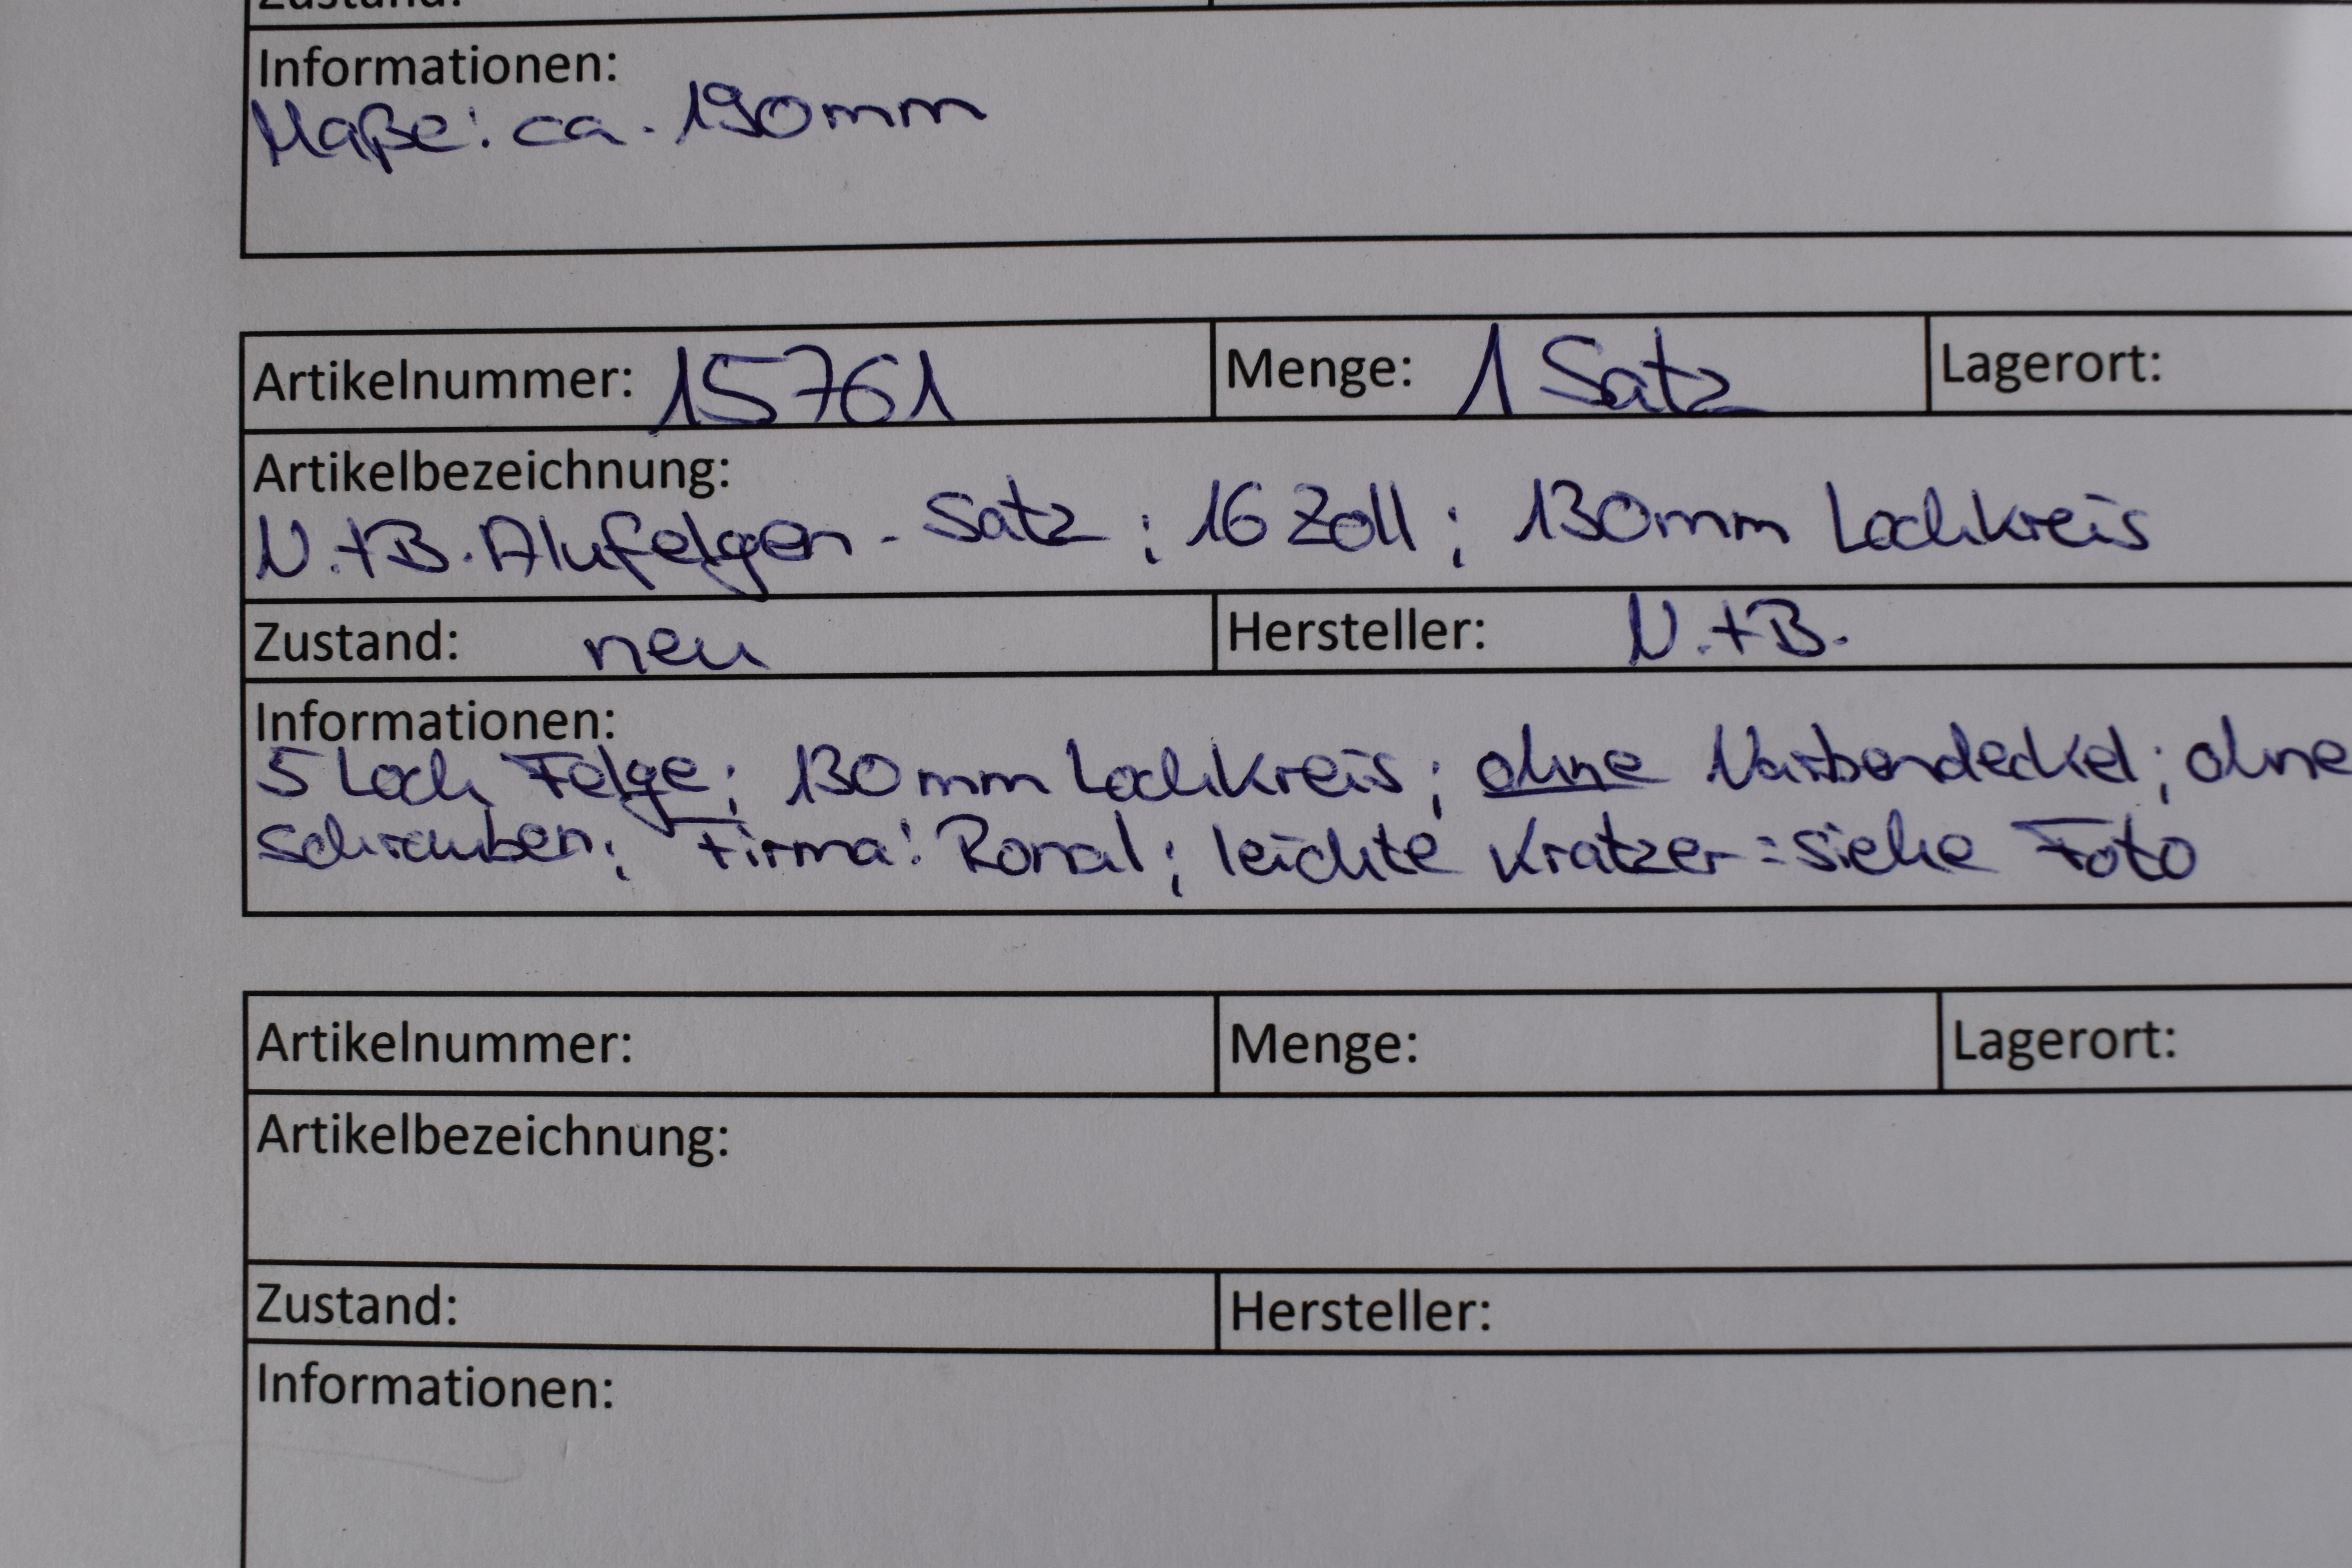 Zustand:
Informationen:
Maße: ca. 190mm
Artikelnummer: 15761 Menge: 1 Satz Lagerort:
Artikelbezeichnung:
N.+B. Alufelgen-Satz ; 16 Zoll ; 130mm Lochkreis
Zustand: neu Hersteller: N.+B.
Informationen:
5 Loch Felge; 130mm Lochkreis; ohne Narbendeckel; ohne
Schrauben; Firma: Ronal; leichte Kratzer = siehe Foto
Artikelnummer: Menge: Lagerort:
Artikelbezeichnung:
Zustand: Hersteller:
Informationen: